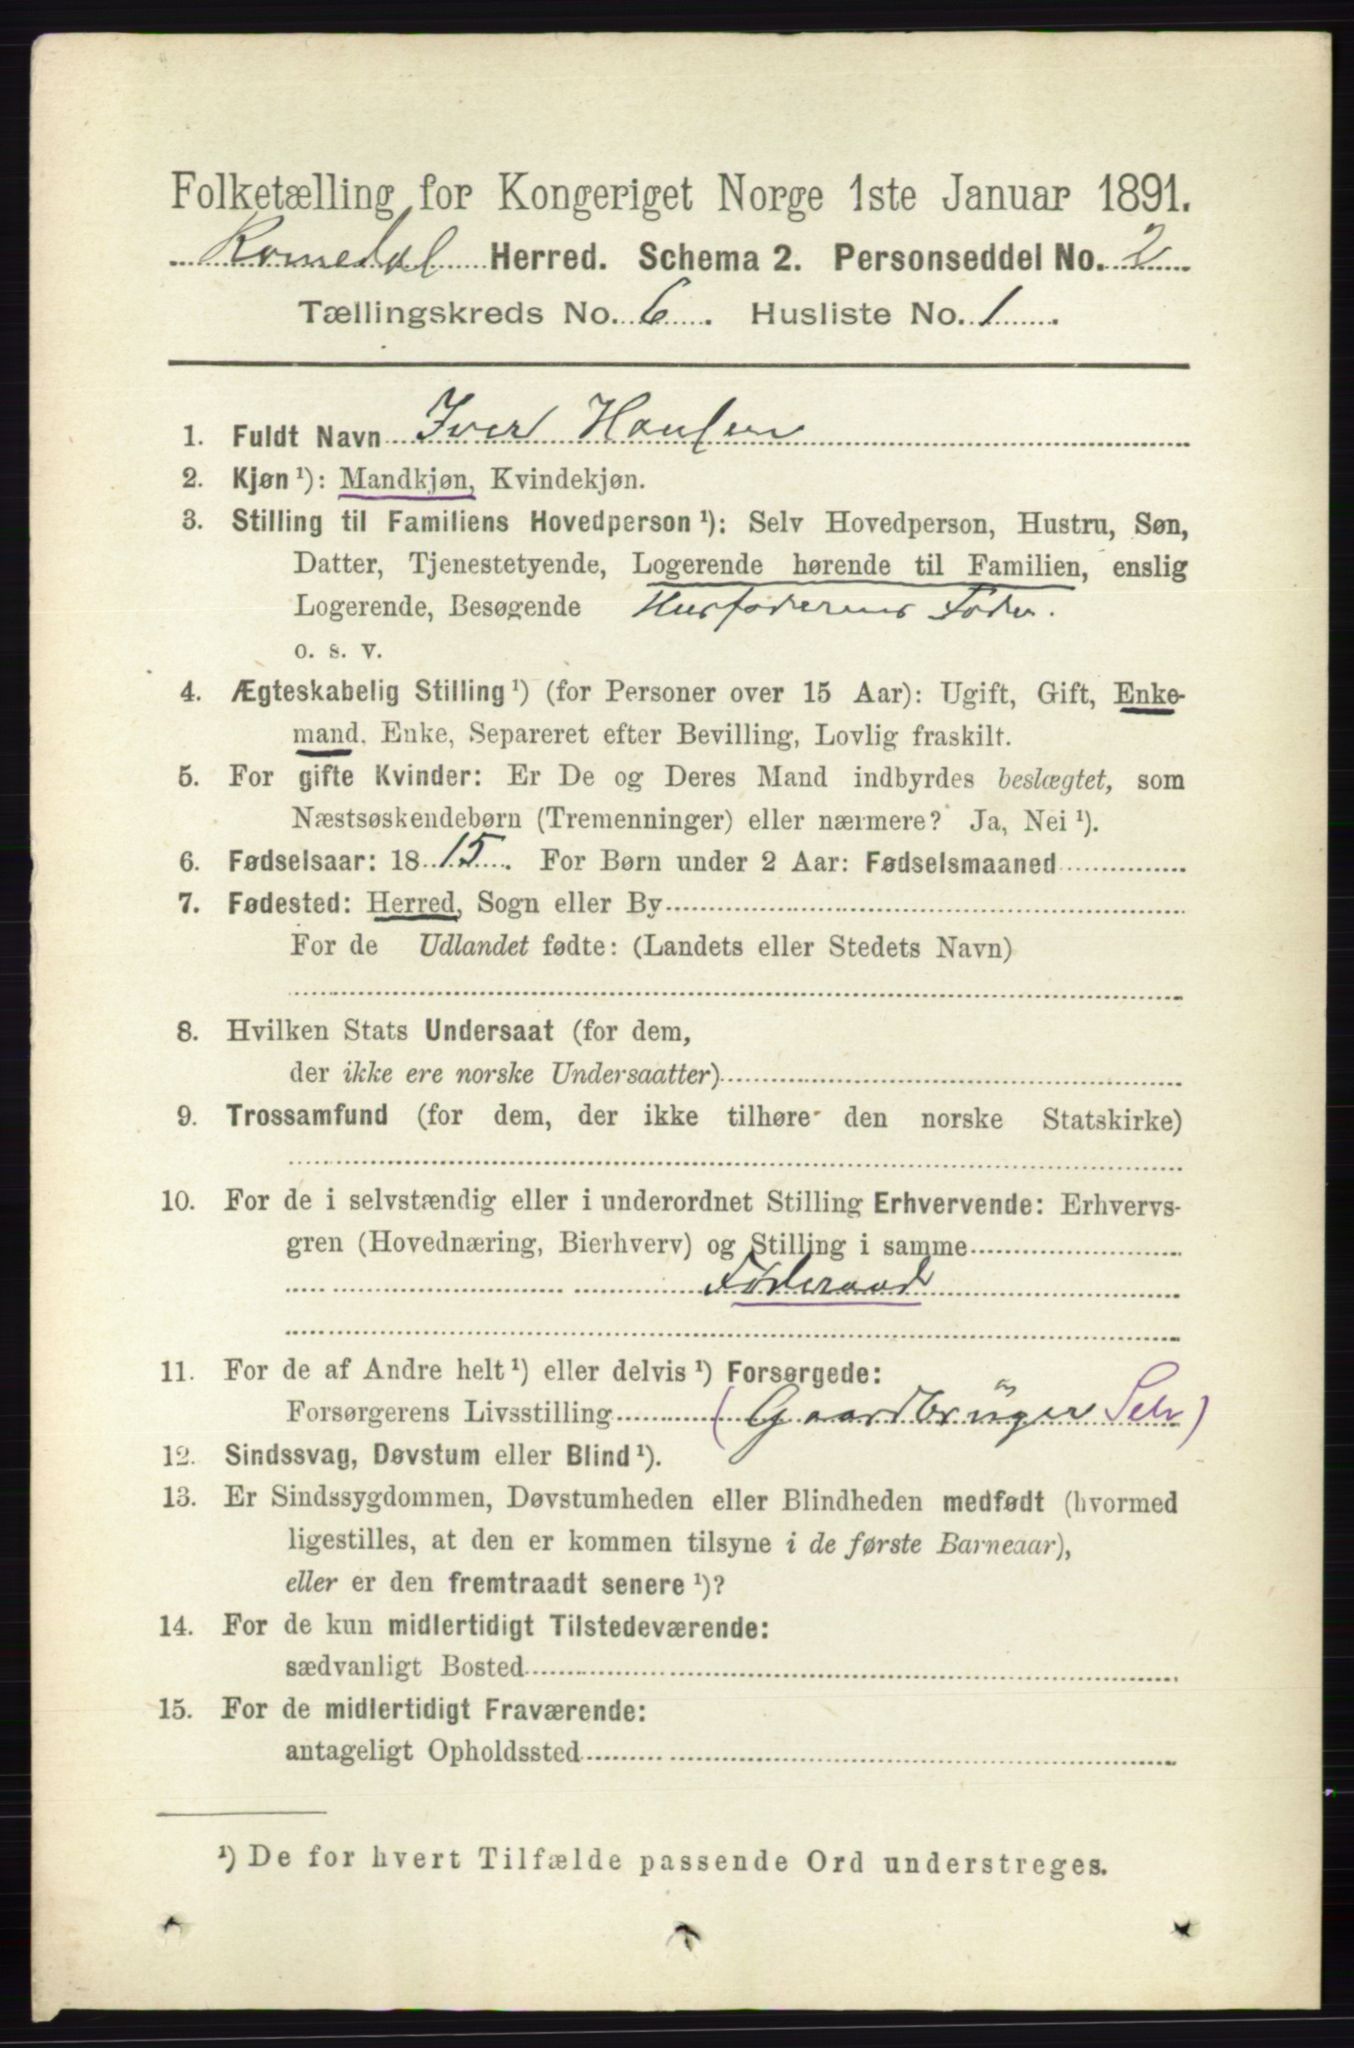 Folketælling for Kongeriget Norge 1ste Januar 1891.
Romedal Herred. Schema 2. Personseddel No. 2
Tællingskreds No. 6. Husliste No. 1.
1. Fuldt Navn Iver Hansen
2. Kjøn ¹): Mandkjøn, Kvindekjøn.
3. Stilling til Familiens Hovedperson ¹): Selv Hovedperson, Hustru, Søn,
Datter, Tjenestetyende, Logerende hørende til Familien, enslig
Logerende, Besøgende Husfaderens Fader.
o. s. v.
4. Ægteskabelig Stilling ¹) (for Personer over 15 Aar): Ugift, Gift, Enke-
mand, Enke, Separeret efter Bevilling, Lovlig fraskilt.
5. For gifte Kvinder: Er De og Deres Mand indbyrdes beslægtet, som
Næstsøskendebørn (Tremenninger) eller nærmere? Ja, Nei ¹).
6. Fødselsaar: 1815. For Børn under 2 Aar: Fødselsmaaned
7. Fødested: Herred, Sogn eller By
For de Udlandet fødte: (Landets eller Stedets Navn)
8. Hvilken Stats Undersaat (for dem,
der ikke ere norske Undersaatter)
9. Trossamfund (for dem, der ikke tilhøre den norske Statskirke)
10. For de i selvstændig eller i underordnet Stilling Erhvervende: Erhvervs-
gren (Hovednæring, Bierhverv) og Stilling i samme
Føderaad
11. For de af Andre helt ¹) eller delvis ¹) Forsørgede:
Forsørgerens Livsstilling (Gaardbrüger Selv)
12. Sindssvag, Døvstum eller Blind ¹).
13. Er Sindssygdommen, Døvstumheden eller Blindheden medfødt (hvormed
ligestilles, at den er kommen tilsyne i de første Barneaar),
eller er den fremtraadt senere ¹)?
14. For de kun midlertidigt Tilstedeværende:
sædvanligt Bosted
15. For de midlertidigt Fraværende:
antageligt Opholdssted
¹) De for hvert Tilfælde passende Ord understreges.